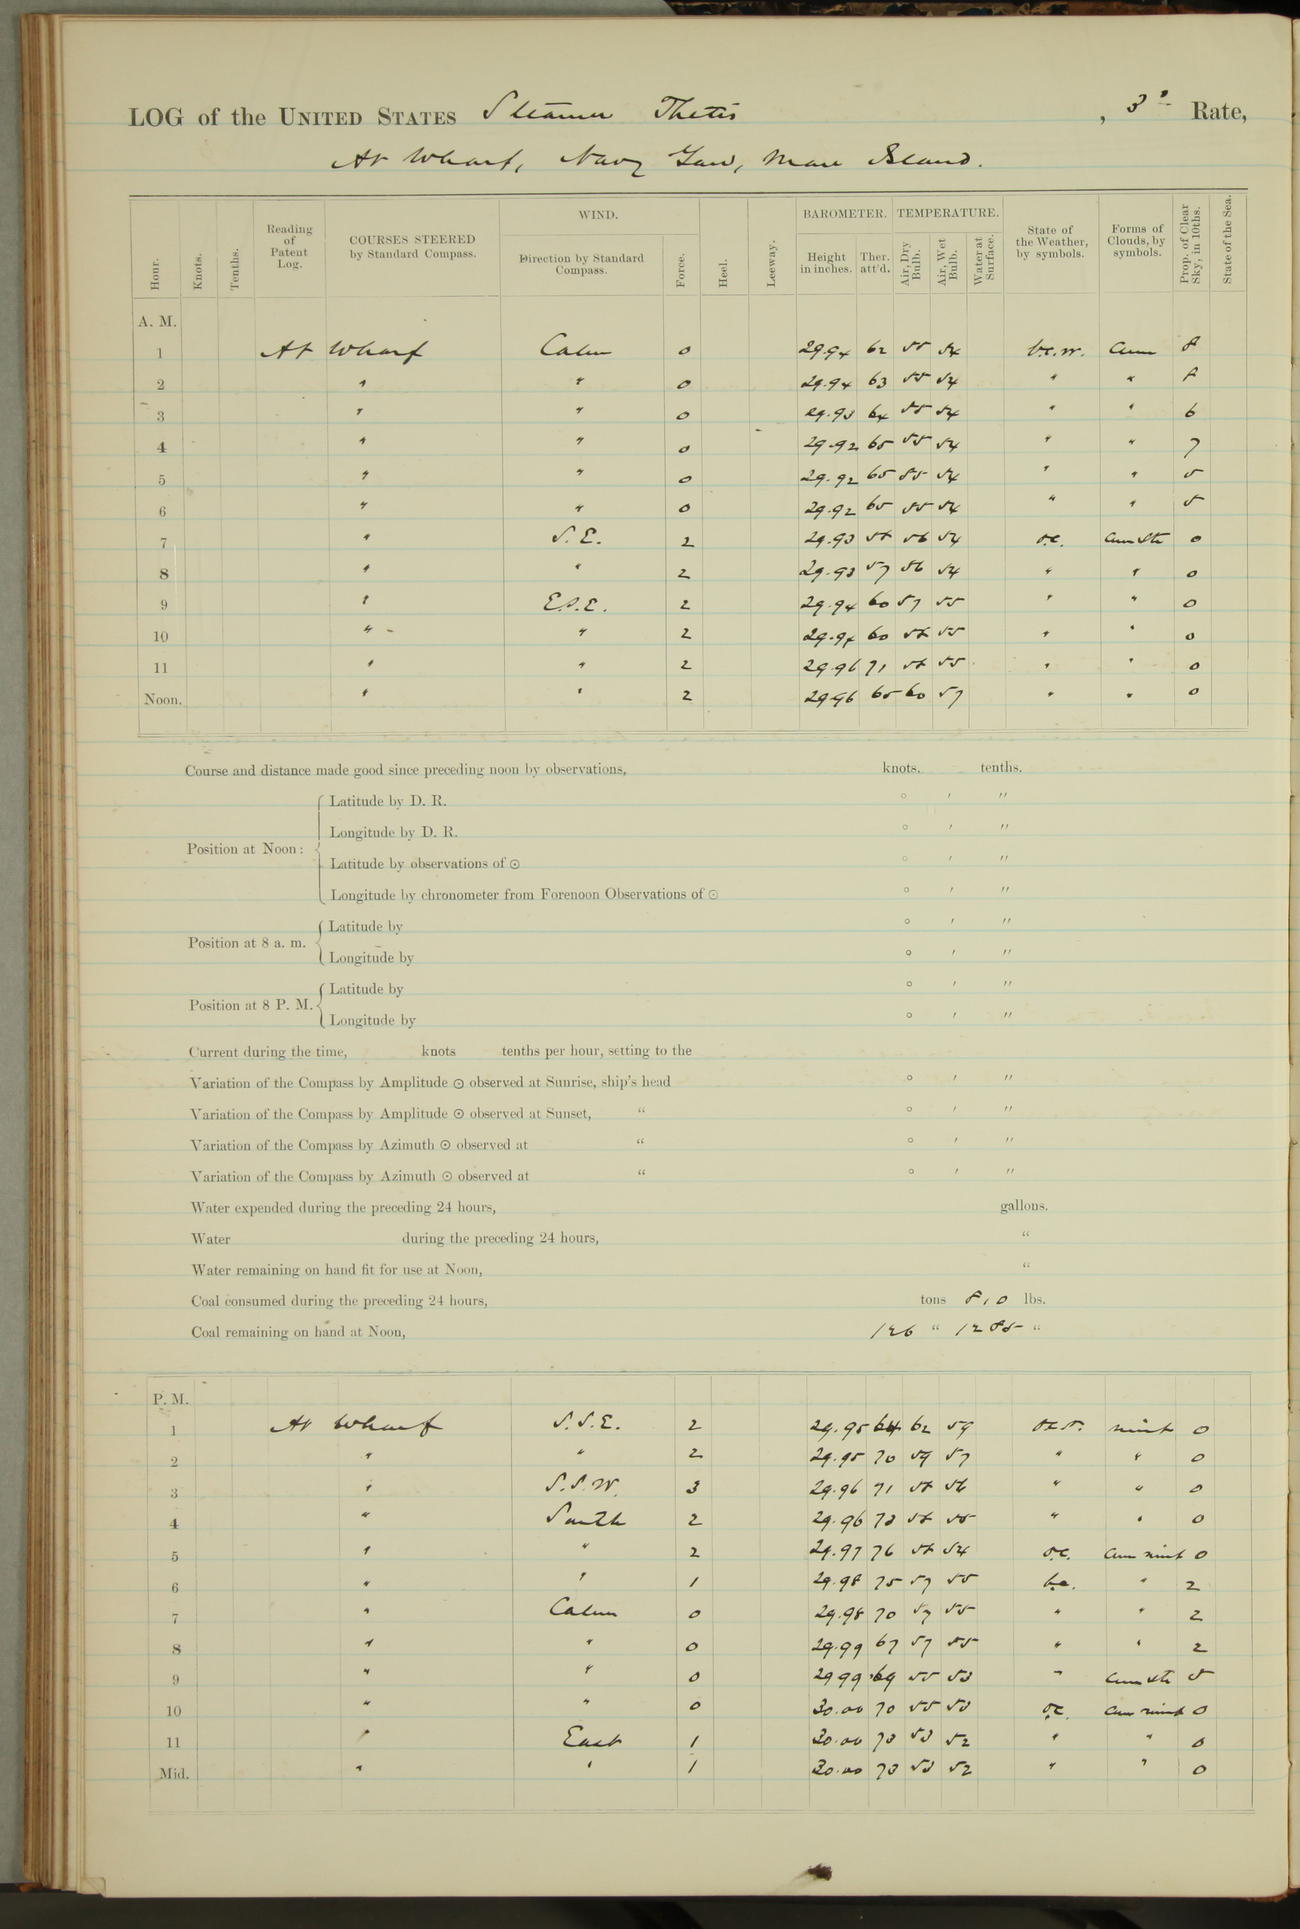 LOG of the UNITED STATES Steamer Thetis , 3d Rate,
At Wharf, Navy Yard, Mare Island.
Hour. Knots. Tenths. Reading of Patent Log. COURSES STEERED by Standard Compass. WIND. Direction by Standard Compass. Force. Heel. Leeway. BAROMETER. Height in inches. Ther. att'd. TEMPERATURE. Air, Dry Bulb. Air, Wet Bulb. Water at Surface. State of the Weather, by symbols. Forms of Clouds, by symbols. Prop. of Clear Sky, in 10ths. State of the Sea.
A. M.
1 At Wharf Calm 0 29.94 62 55 54 b.c.m. Cum 8
2 " " 0 29.94 63 55 54 " " 8
3 " " 0 29.93 64 55 54 " " 6
4 " " 0 29.92 65 55 54 " " 7
5 " " 0 29.92 65 55 54 " " 5
6 " " 0 29.92 65 55 54 " " 5
7 " S.E. 2 29.93 58 56 54 o.c. Cum Str 0
8 " " 2 29.93 57 56 54 " " 0
9 " E.S.E. 2 29.94 60 57 55 " " 0
10 " " 2 29.94 60 58 55 " " 0
11 " " 2 29.96 71 58 55 " " 0
Noon. " " 2 29.96 65 60 57 " " 0
Course and distance made good since preceding noon by observations, knots. tenths.
Latitude by D. R. ° ′ ″
Longitude by D. R. ° ′ ″
Position at Noon:
Latitude by observations of ☉ ° ′ ″
Longitude by chronometer from Forenoon Observations of ☉ ° ′ ″
Latitude by ° ′ ″
Position at 8 a. m.
Longitude by ° ′ ″
Latitude by ° ′ ″
Position at 8 P. M.
Longitude by ° ′ ″
Current during the time, knots tenths per hour, setting to the
Variation of the Compass by Amplitude ☉ observed at Sunrise, ship's head ° ′ ″
Variation of the Compass by Amplitude ☉ observed at Sunset, " ° ′ ″
Variation of the Compass by Azimuth ☉ observed at " ° ′ ″
Variation of the Compass by Azimuth ☉ observed at " ° ′ ″
Water expended during the preceding 24 hours, gallons.
Water during the preceding 24 hours, "
Water remaining on hand fit for use at Noon, "
Coal consumed during the preceding 24 hours, tons 810 lbs.
Coal remaining on hand at Noon, 126 " 1285 "
P. M.
1 At Wharf S.S.E. 2 29.95 64 62 59 nimb 0
2 " " 2 29.95 70 59 57 " " 0
3 " S.S.W. 3 29.96 71 58 56 " " 0
4 " South 2 29.96 73 58 55 " " 0
5 " " 2 29.97 76 58 54 o.c. Cum nimb 0
6 " " 1 29.98 75 57 55 b.c. " 2
7 " Calm 0 29.98 70 57 55 " " 2
8 " " 0 29.99 67 57 55 " " 2
9 " " 0 29 99 69 55 53 " Cum Str 5
10 " " 0 30.00 70 55 53 o.c. Cum nimb 0
11 " East 1 30.00 73 53 52 " " 0
Mid. " " 1 30.00 73 53 52 " " 0